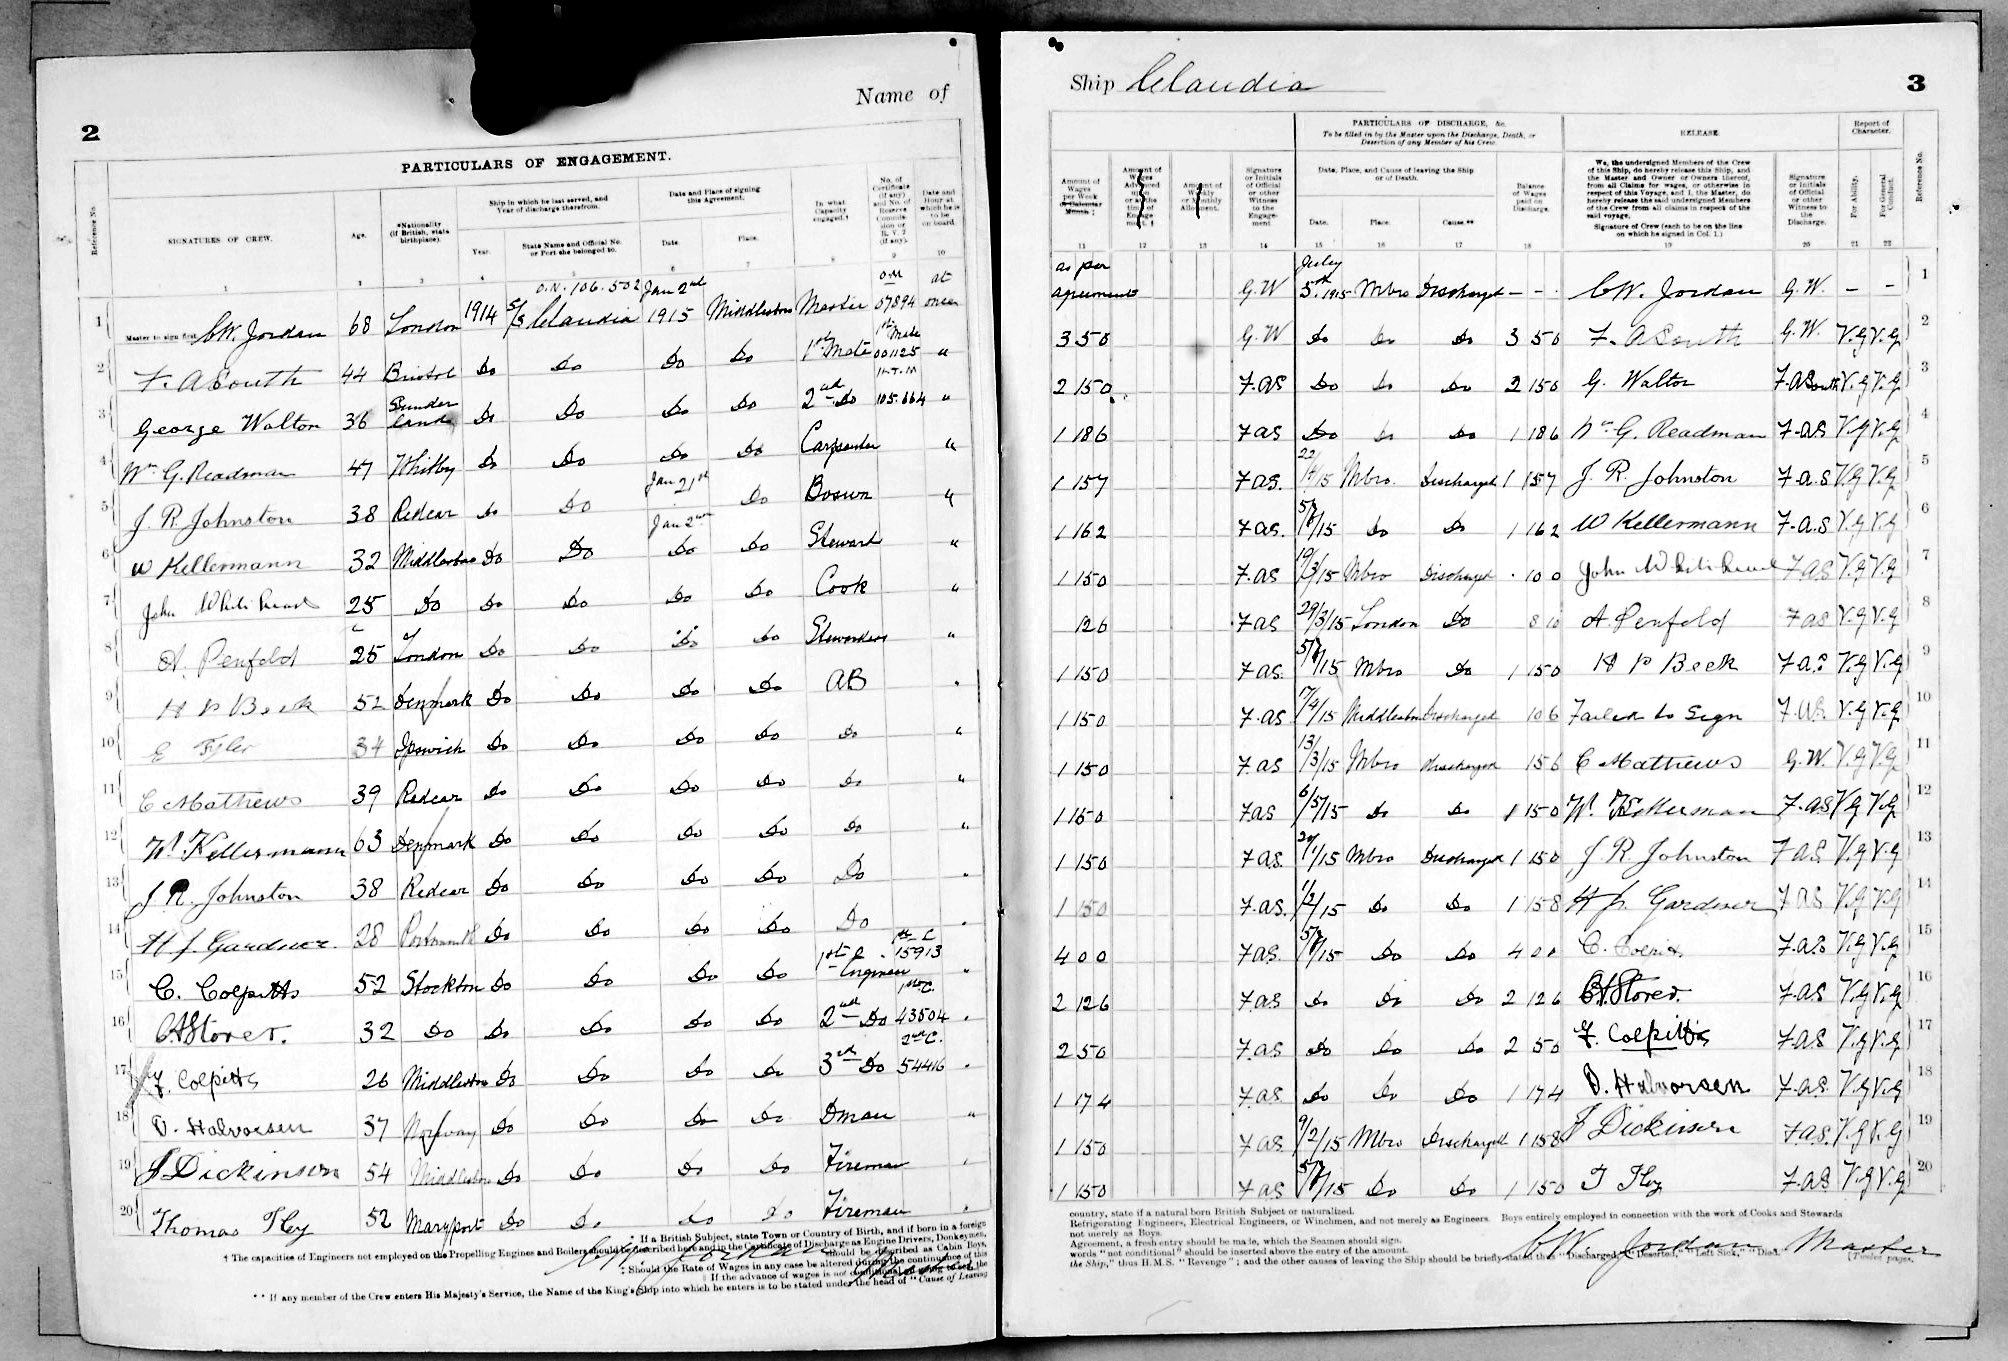 2
Name of
PARTICULARS OF ENGAGEMENT.
Reference No.
SIGNATURES OF CREW.
Age.
*Nationality (If British, state birthplace).
Ship in which he last served, and Year of discharge therefrom.
Year.
State Name and Official No. or Port she belonged to.
Date and Place of signing this Agreement.
Date.
Place.
In what Capacity engaged.†
No. of Certificate (if any) and No. of Reserve Commission or R.V.2 (if any).
Date and Hour at which he is to be on board.
1 2 3 4 5 6 7 8 9 10
O.N. 106.502
1 Master to sign first. CW. Jordan 68 London 1914 S/S Claudia Jan 2nd 1915 Middlesbro Master O.M 07894 at once
2 F. A South 44 Bristol Do Do Do Do 1st Mate 1st Mate 001125 "
3 George Walton 36 Sunderland Do Do Do Do 2nd Do 105.664 "
4 Wm G. Readman 47 Whitby Do Do Do Do Carpenter "
5 J. R. Johnston 38 Redcar Do Do Jan 21st Do Bosun "
6 W Kellermann 32 Middlesbro Do Do Jan 2nd Do Do Steward "
7 John Whitehead 25 Do Do Do Do Do Cook "
8 A. Penfold 25 London Do Do Do Do Stewardess "
9 H P Beck 52 Denmark Do Do Do Do AB "
10 E Tyler 34 Ipswich Do Do Do Do Do "
11 C Mathews 39 Redcar Do Do Do Do Do "
12 W. Kellermann 63 Denmark Do Do Do Do Do "
13 J R. Johnston 38 Redcar Do Do Do Do Do "
14 H J. Gardner. 28 Portsmouth Do Do Do Do Do "
15 C. Colpitts 52 Stockton Do Do Do Do 1st Engineer 1st C 15913 "
16 CA Storer. 32 Do Do Do Do Do 2nd Do 43504 "
17 F. Colpitts 26 Middlesbro Do Do Do Do 3rd Do 2nd C. 54416 "
18 O. Halvorsen 37 Norway Do Do Do Do Dman "
19 J Dickinson 54 Middlesbro Do Do Do Do Fireman "
20 Thomas Fley 52 Maryport Do Do Do Do Fireman "
* If a British Subject, state Town or Country of Birth, and if born in a foreign
† The capacities of Engineers not employed on the Propelling Engines and Boilers should be described here and in the Certificate of Discharge as Engine Drivers, Donkeymen,
should be described as Cabin Boys,
‡ Should the Rate of Wages in any case be altered during the continuance of this
If the advance of wages is not conditional
** If any member of the Crew enters His Majesty's Service, the Name of the King's Ship into which he enters is to be stated under the head of "Cause of Leaving
Ship Claudia
3
PARTICULARS OF DISCHARGE, &c.
To be filled in by the Master upon the Discharge, Death, or Desertion of any Member of his Crew.
RELEASE.
Report of Character.
Amount of Wages per Week or Calendar Month ‡
Amount of Wages Advanced upon or at the time of Engagement. †
Amount of Weekly or Monthly Allotment.
Signature or Initials of Official or other Witness to the Engagement
Date, Place, and Cause of leaving the Ship or of Death.
Date.
Place.
Cause.**
Balance of Wages paid on Discharge.
We, the undersigned Members of the Crew of this Ship, do hereby release this Ship, and the Master and Owner or Owners thereof, from all Claims for wages, or otherwise in respect of this Voyage, and I, the Master, do hereby release the said undersigned Members of the Crew from all claims in respect of the said voyage.
Signature of Crew (each to be on the line on which he signed in Col. 1.)
Signature or Initials of Official or other Witness to the Discharge.
For Ability.
For General Conduct.
Reference No.
11 12 13 14 15 16 17 18 19 20 21 22
as per agreement G.W July 5th 1915 Mbro Discharged — — CW. Jordan G.W. — — 1
3 5 0 G.W Do Do Do 3 5 0 F. A South G.W. V.G V.G 2
2 15 0 F.AS Do Do Do 2 15 0 G. Walton F.A South V.G V.G 3
1 18 6 F.AS Do Do Do 1 18 6 Wm G. Readman F.A.S V.G V.G 4
1 15 7 F.AS. 22/4/15 Mbro. Discharged 1 15 7 J. R. Johnston F.A.S V.G V.G 5
1 16 2 F.AS. 5/7/15 Do Do 1 16 2 W Kellermann F.A.S V.G V.G 6
1 15 0 F.AS 19/3/15 Mbro Discharged . 10 0 John Whitehead F.AS V.G V.G 7
12 6 F.AS 29/3/15 London Do 8 10 A Penfold F.AS V.G V.G 8
1 15 0 F.AS. 5/7/15 Mbro Do 1 15 0 H P Beck F.A.S V.G V.G 9
1 15 0 F.AS 17/4/15 Middlesbro Discharged 10 6 Failed to Sign F.AS. V.G V.G 10
1 15 0 F.AS 13/3/15 Mbro Discharged 15 6 C Mathews G.W. V.G V.G 11
1 15 0 F.AS 6/5/15 Do Do 1 15 0 W. Kellermann F.AS V.G V.G 12
1 15 0 F.AS. 20/1/15 Mbro Discharged 1 15 0 J R. Johnston F.AS. V.G V.G 13
1 15 0 F.AS. 1/2/15 Do Do 1 15 8 H J. Gardner F.AS V.G V.G 14
4 0 0 F.AS. 5/7/15 Do Do 4 0 0 C. Colpitts F.A.S V.G V.G 15
2 12 6 F.AS Do Do Do 2 12 6 CA Storer. F.AS V.G V.G 16
2 5 0 F.AS Do Do Do 2 5 0 F. Colpitts F.AS V.G V.G 17
1 17 4 F.AS Do Do Do 1 17 4 O. Halvorsen F.AS. V.G V.G 18
1 15 0 F.AS. 9/2/15 Mbro Discharged 1 15 8 J Dickinson F.AS. V.G V.G 19
1 15 0 F.AS 5/7/15 Do Do 1 15 0 T Fley F.AS V.G V.G 20
country, state if a natural born British Subject or naturalized.
Refrigerating Engineers, Electrical Engineers, or Winchmen, and not merely as Engineers. Boys entirely employed in connection with the work of Cooks and Stewards
not merely as Boys.
Agreement, a fresh entry should be made, which the Seamen should sign.
words "not conditional" should be inserted above the entry of the amount.
the Ship," thus H.M.S. "Revenge"; and the other causes of leaving the Ship should be briefly stated thus "Discharged," "Deserted," "Left Sick," "Died."
CW. Jordan Master
[Twelve pages.